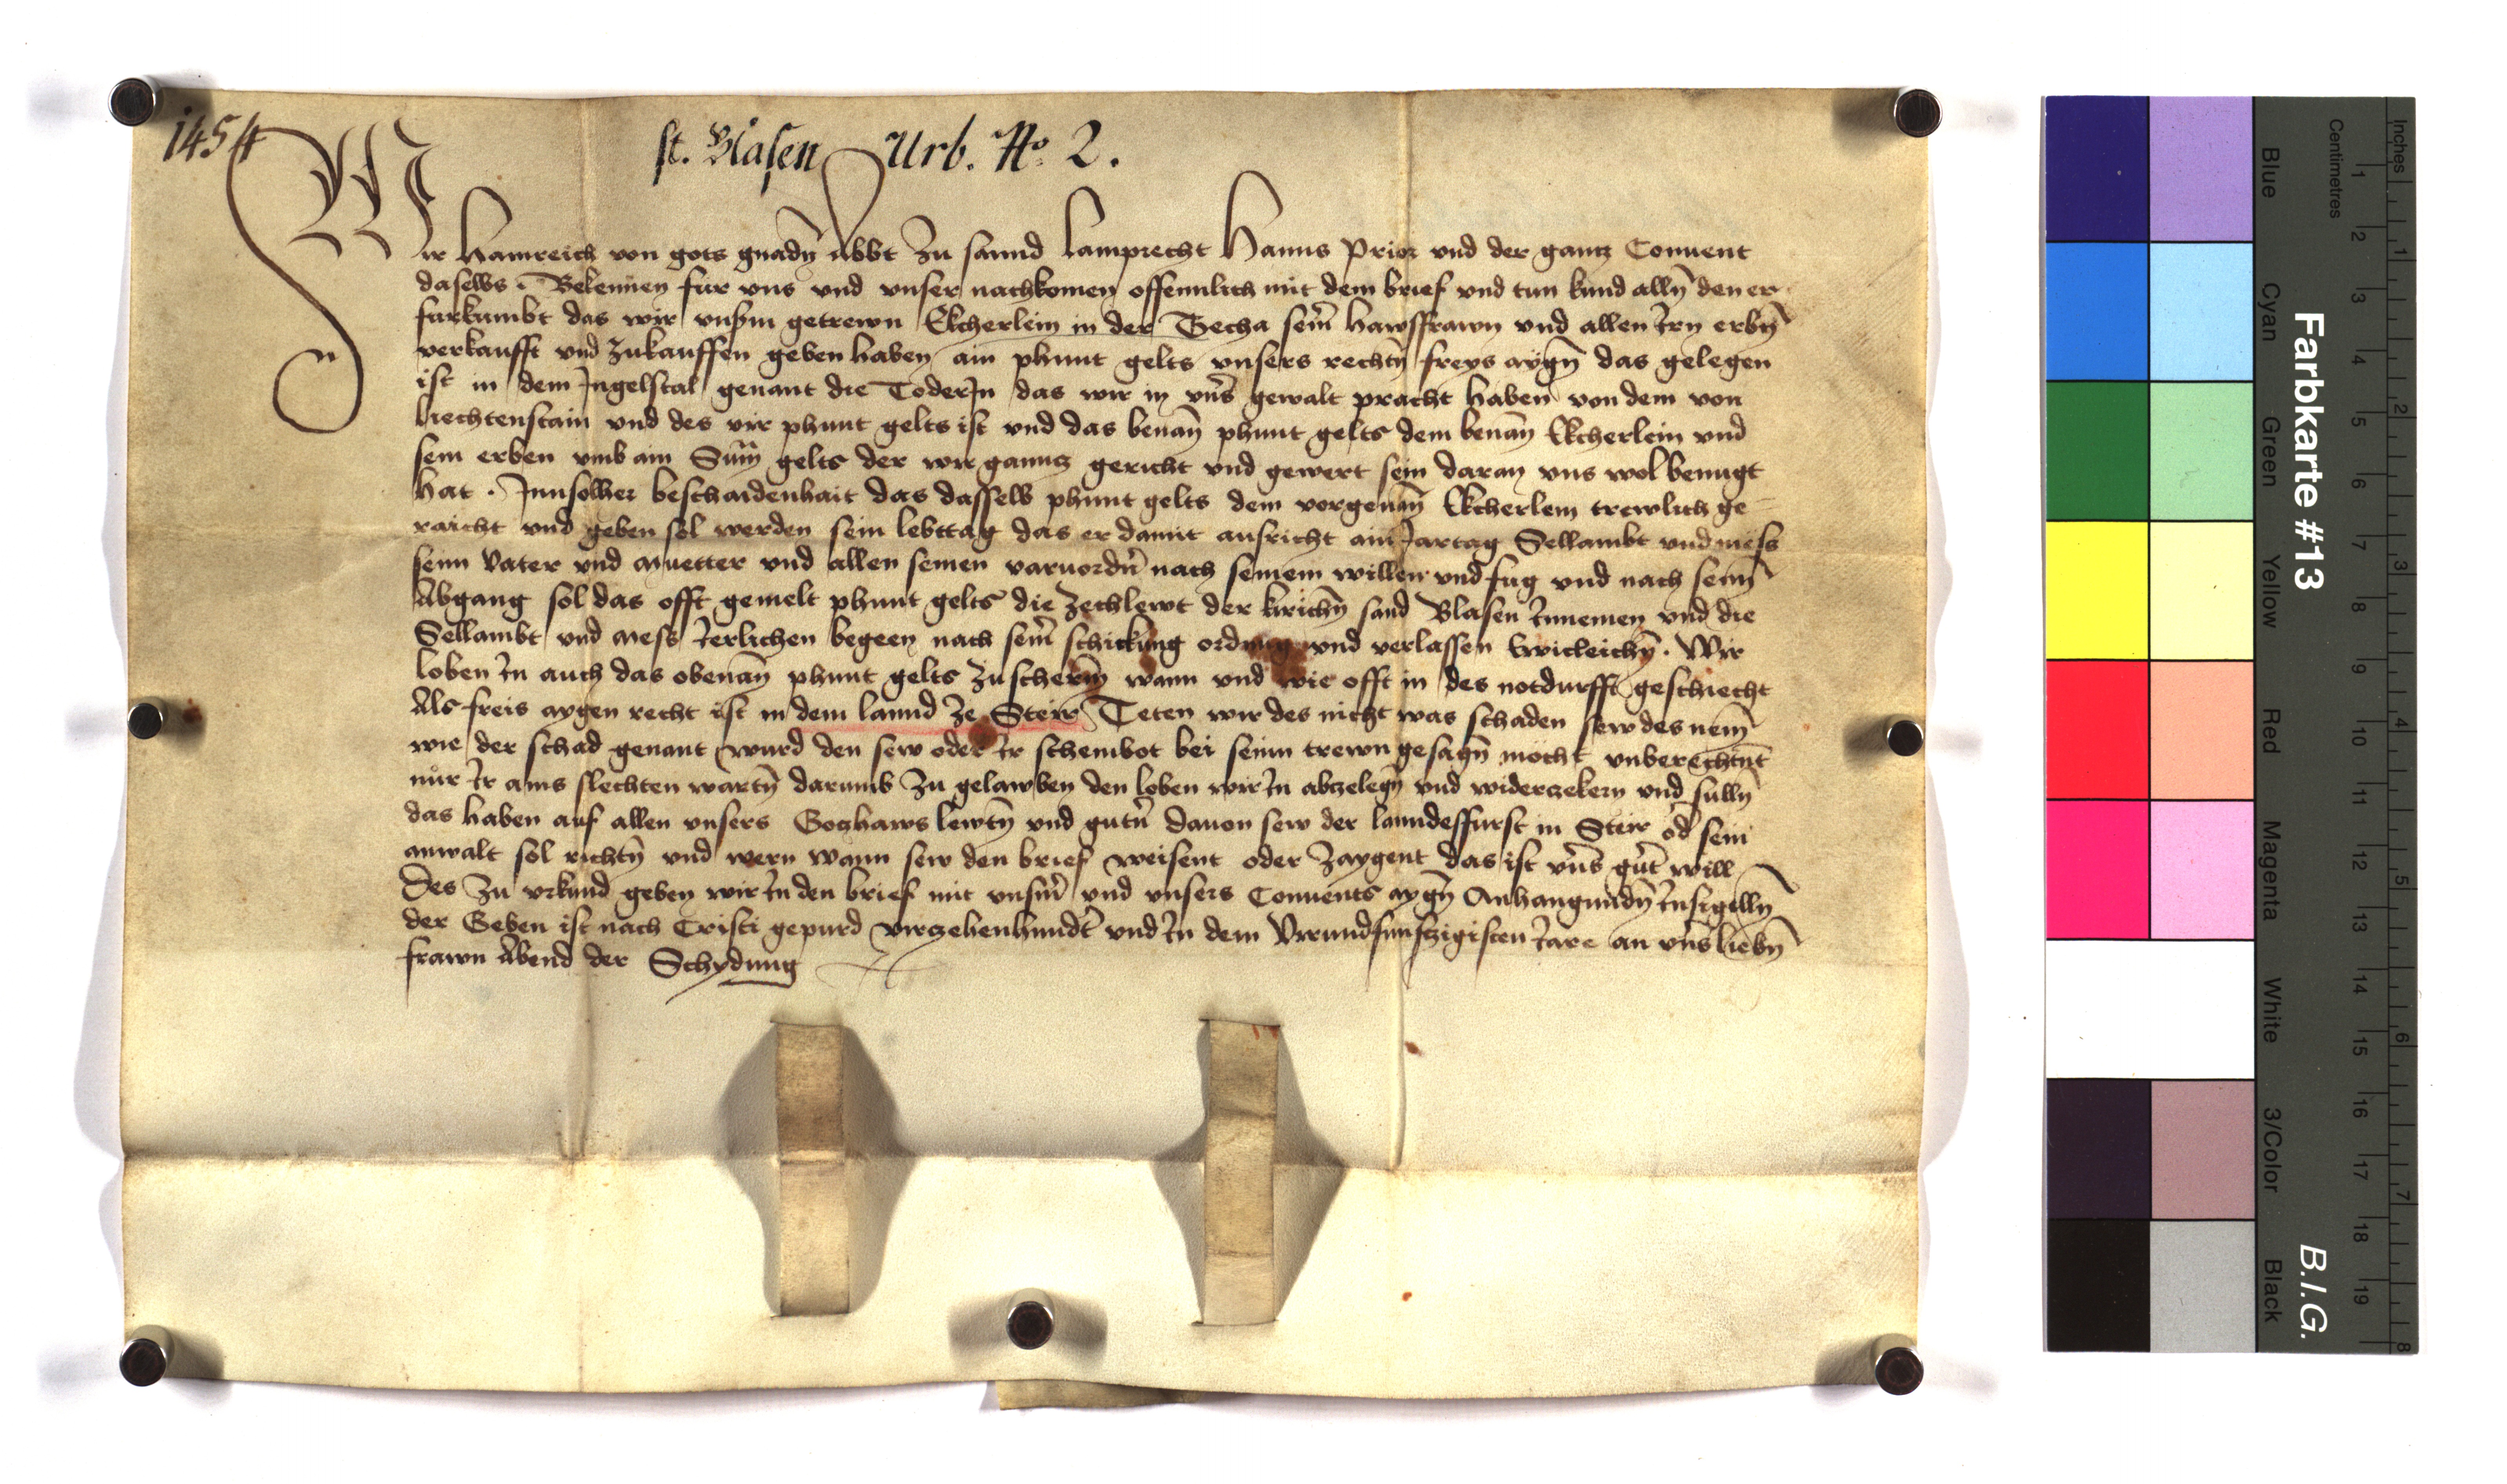 1454
st. Blasen Urb. No. 2.
Wir Hainreich von gots gnadn̄ Abbt Zu sannd Lamprecht Hanns Prior vnd der gantz Conuent
daselbs. Bekennen fur vns vnd vnser nachkomen offennlich mit dem brief vnd tun kund alln̄ den er
furkumbt das wir vnsm̄ getrewn Ekcherlein in der Zecha seim̄ hawsfrawn vnd allen irn erbn̄
verkaufft vnd zukauffen geben haben ain phunt gelts vnsers rechtn̄ freys aygn̄ das gelegen
ist in dem Ingelstal genant die Toderin das wir in vns̄ gewalt pracht haben von dem von
Liechtenstain vnd des vir phunt gelts ist vnd das benan̄ phunt gelts dem benan̄ Ekcherlein vnd
sein erben vmb ain Sum̄ gelts der wir ganntz gericht vnd gewert sein daran vns wol benugt
hat. Inn solher beschaidenhait das dasselb phunt gelts dem vorgenan̄ Ekcherlein trewlich ge-
raicht vnd geben sol werden sein lebttag das er damit ausricht ain Jartag Sellambt vnd mess
seinn Vater vnd Muetter vnd allen seinen varuordn̄ nach seinem willen vnd fug vnd nach seinn̄
Abgang sol das offt gemelt phunt gelts die Zechlewt der kirichn̄ sand Blasen Innemen vnd die
Sellambt vnd Mess Ierlichen begeen nach seim̄ schickung ordnung vnd verlassen Ewicleichn̄. Wir
loben In auch das obenan̄ phunt gelts zu scherm̄ wann vnd wie offt in des notdurfft geschiecht
Als freis aygen recht ist in dem lannd ze Steir Teten wir des nicht was schaden sew des nem̄
wie der schad genant wurd den sew oder Ir schembot bei seinn trewn gesagn̄ mocht vnberechtnt
nůr Ir ains slechten wartn̄ darumb zu gelawben den loben wir In abzelegn̄ vnd widerzekern vnd sulln̄
das haben auf allen vnsers Gotzhaws lewtn̄ vnd gutn̄ dauon sew der lanndesfurst in Steir od̄ sein
anwalt sol richtn̄ vnd wern wann sew den brief weisent oder zaygent das ist vns̄ gut̄ will
Des zu vrkund geben wir In den brief mit vnsm̄ vnd vnsers Conuents aygn̄ Anhangundn̄ Insigelln̄
der Geben ist nach Cristi gepurd virzehenhundt̄ vnd In dem Virundfunfzigisten Iare an vns̄ liebn̄
frawn Abend der Schydung
Farbkarte #13
B.I.G.
Inches 1 2 3 4 5 6 7 8
Centimetres 1 2 3 4 5 6 7 8 9 10 11 12 13 14 15 16 17 18 19
Blue Cyan Green Yellow Red Magenta White 3/Color Black